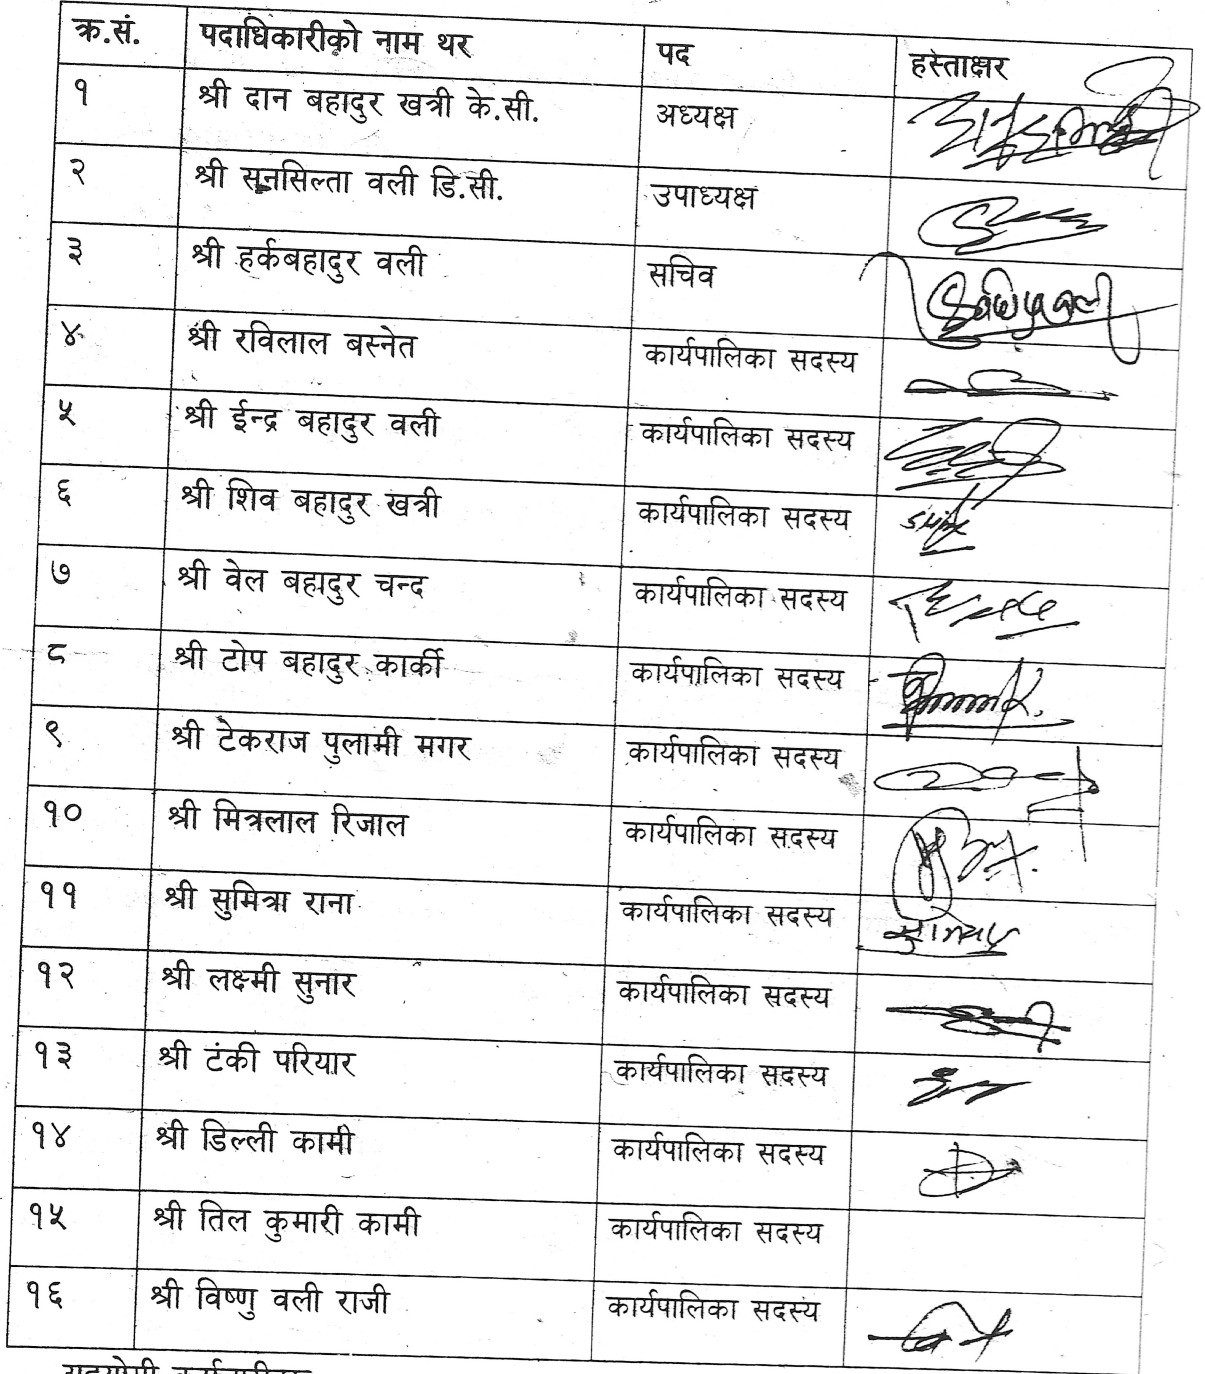 क्र.सं. पदाधिकारीको नाम थर पद हस्ताक्षर
१ श्री दान बहादुर खत्री के.सी. अध्यक्ष
२ श्री सुनसिल्ता वली डि.सी. उपाध्यक्ष
३ श्री हर्कबहादुर वली सचिव
४ श्री रविलाल बस्नेत कार्यपालिका सदस्य
५ श्री ईन्द्र बहादुर वली कार्यपालिका सदस्य
६ श्री शिव बहादुर खत्री कार्यपालिका सदस्य
७ श्री वेल बहादुर चन्द कार्यपालिका सदस्य
८ श्री टोप बहादुर कार्की कार्यपालिका सदस्य
९ श्री टेकराज पुलामी मगर कार्यपालिका सदस्य
१० श्री मित्रलाल रिजाल कार्यपालिका सदस्य
११ श्री सुमित्रा राना कार्यपालिका सदस्य
१२ श्री लक्ष्मी सुनार कार्यपालिका सदस्य
१३ श्री टंकी परियार कार्यपालिका सदस्य
१४ श्री डिल्ली कामी कार्यपालिका सदस्य
१५ श्री तिल कुमारी कामी कार्यपालिका सदस्य
१६ श्री विष्णु वली राजी कार्यपालिका सदस्य